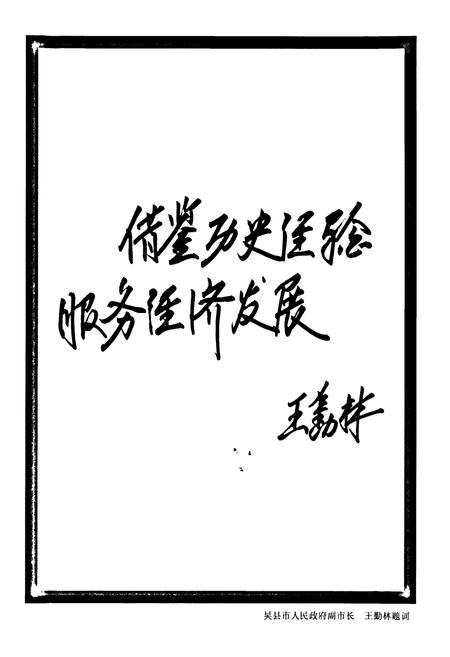 借鉴历史经验
服务经济发展
王勤林
吴县市人民政府副市长 王勤林题词